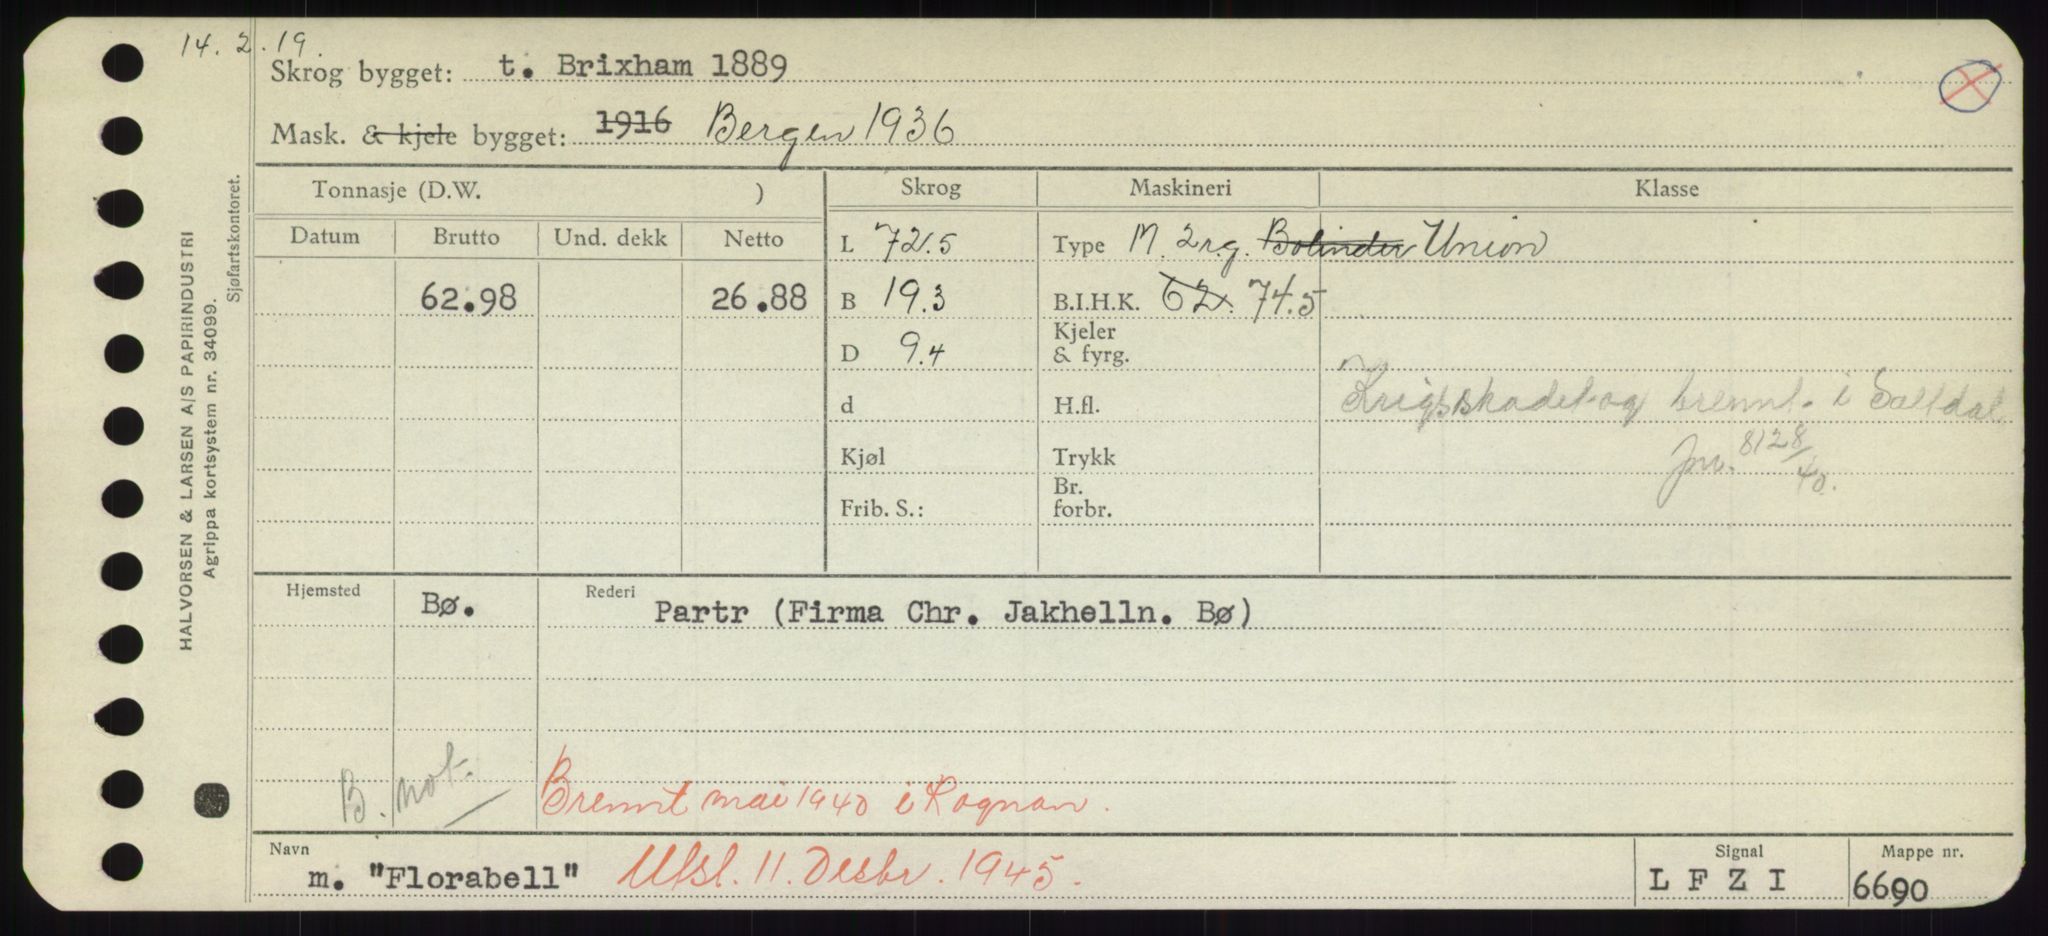 14.2.19.
Skrog bygget: t. Brixham 1889
Mask. & kjele bygget: 1916 Bergen 1936
Tonnasje (D.W. ) Skrog Maskineri Klasse
Datum Brutto Und. dekk Netto L 72.5 Type M. 2 r.g. Bolinder Union
62.98 26.88 B 19.3 B.I.H.K. 62. 74.5
D 9.4 Kjeler
& fyrg.
d H.fl. Krigsskadet og brennt i Saltdal
Kjøl Trykk Jnr. 8128/40.
Frib. S.: Br.
forbr.
Hjemsted Bø. Rederi Partr (Firma Chr. Jakhelln. Bø)
B. not. Brennt mai 1940 i Rognan.
Navn m. "Florabell" Utsl. 11. Desbr. 1945. Signal L F Z I Mappe nr. 6690
HALVORSEN & LARSEN A/S PAPIRINDUSTRI
Agrippa kortsystem nr. 34099.
Sjøfartskontoret.